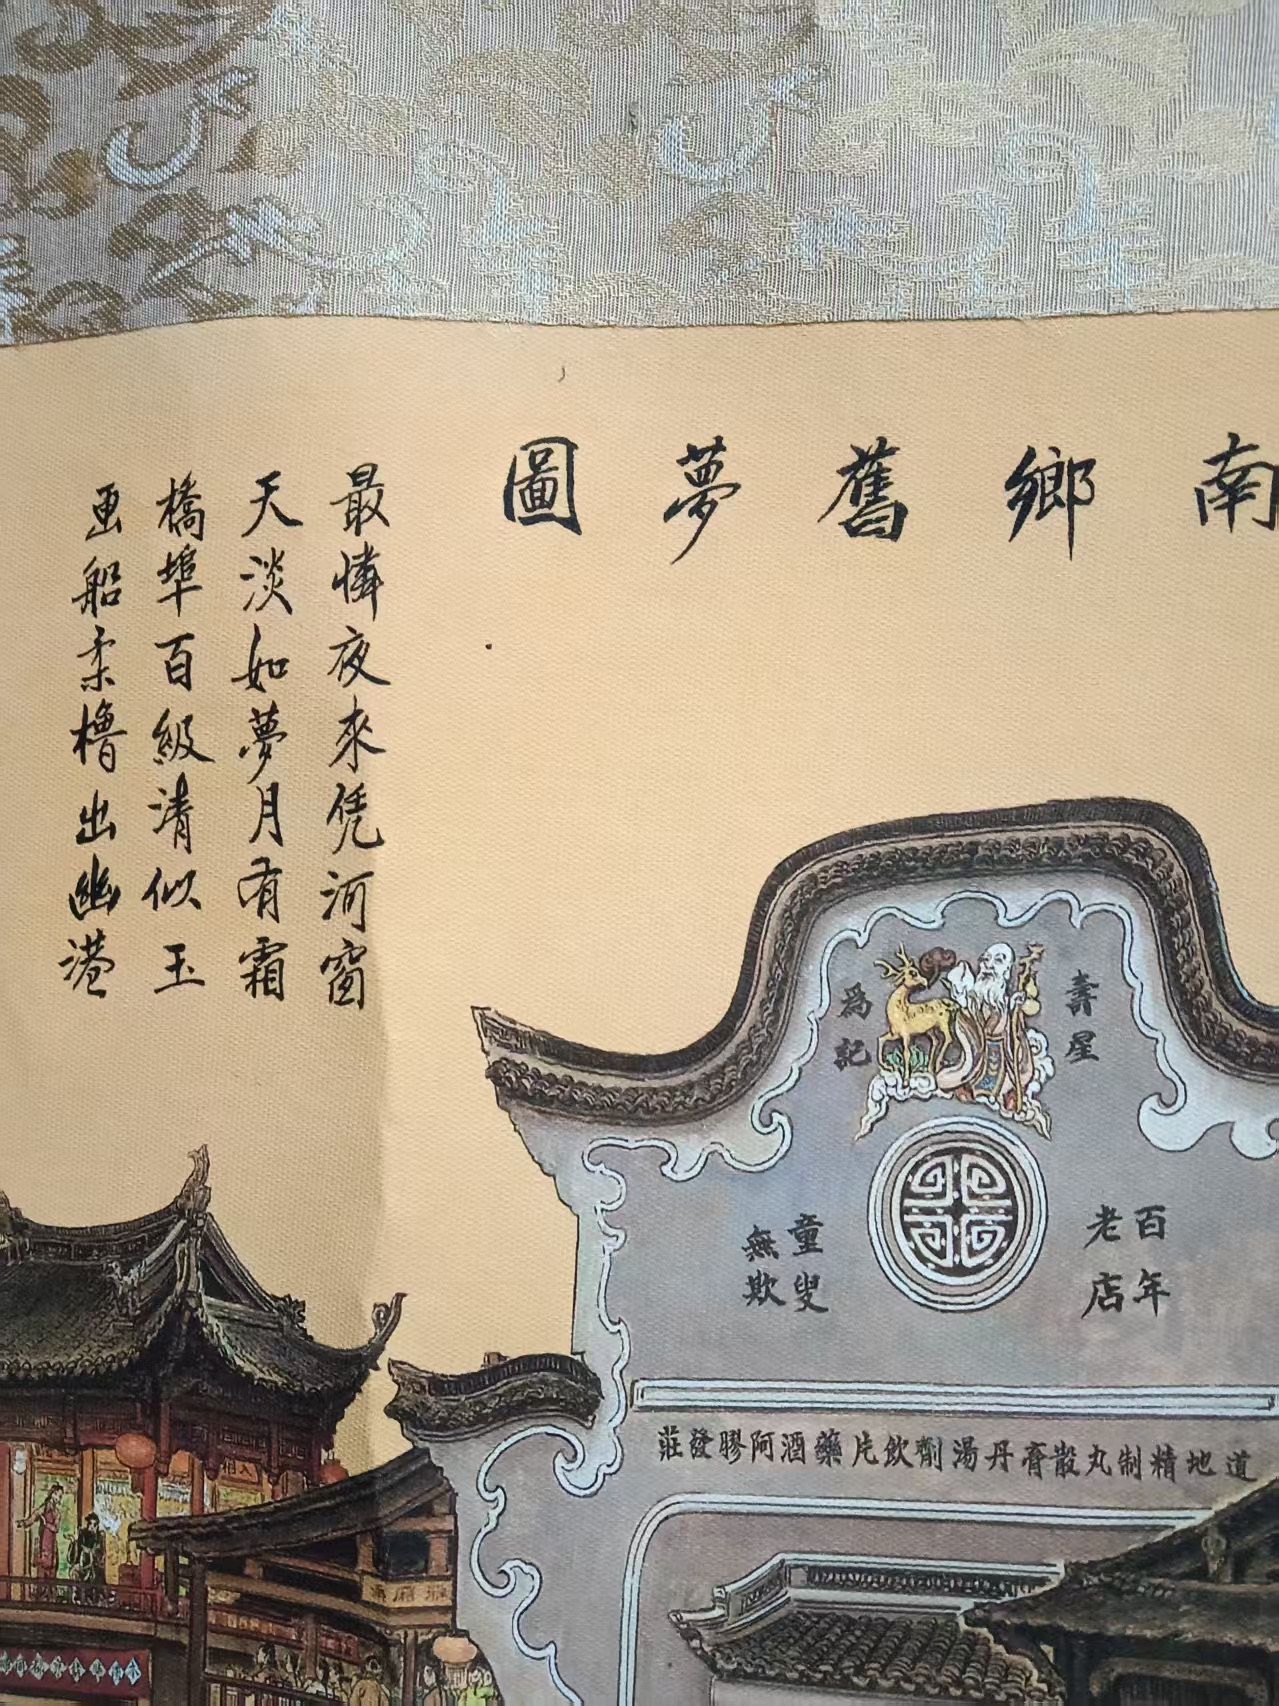 南鄉舊夢圖
最憐夜來凭河窗
天淡如夢月有霜
橋埠百級清似玉
画船柔櫓出幽港
壽星
為記
百年
老店
童叟
無欺
道地精制丸散膏丹湯劑飲片藥酒阿膠發莊